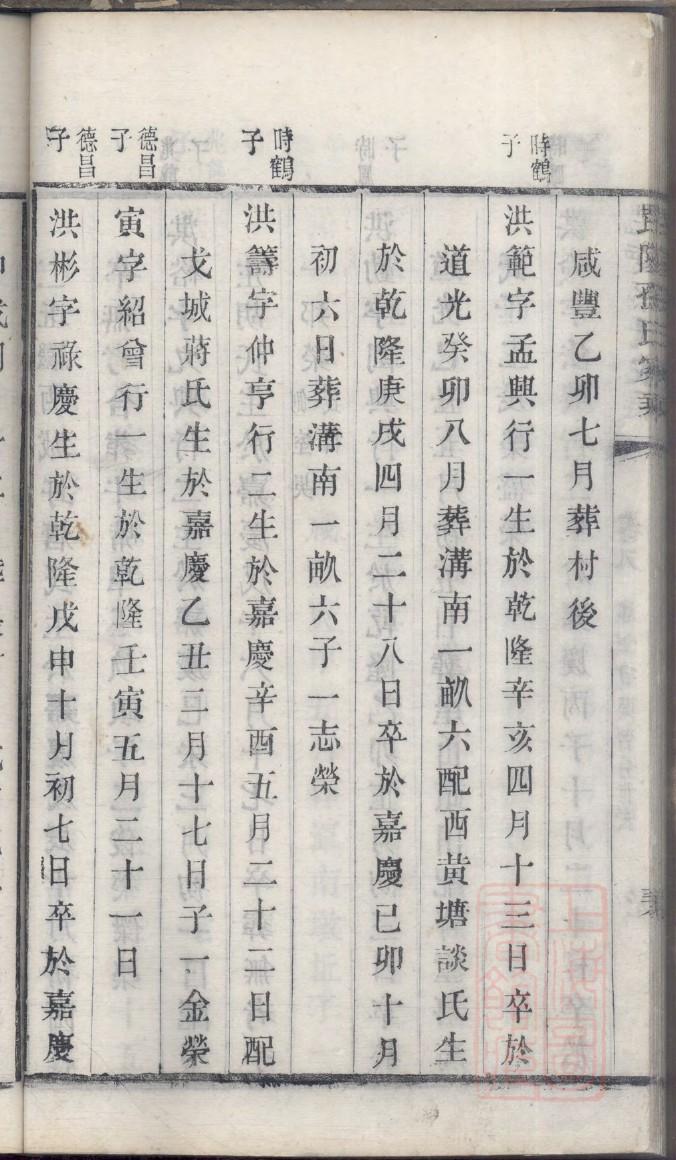 毘陵孫氏家乘
咸豐乙卯七月葬村後
時鶴子
洪範字孟興行一生於乾隆辛亥四月十三日卒於
道光癸卯八月葬溝南一畝六配西黃塘談氏生
於乾隆庚戌四月二十八日卒於嘉慶己卯十月
初六日葬溝南一畝六子一志榮
時鶴子
洪籌字仲亨行二生於嘉慶辛酉五月二十二日配
戈城蔣氏生於嘉慶乙丑二月十七日子一金榮
德昌子
寅字紹曾行一生於乾隆壬寅五月二十一日
德昌子
洪彬字祿慶生於乾隆戊申十月初七日卒於嘉慶